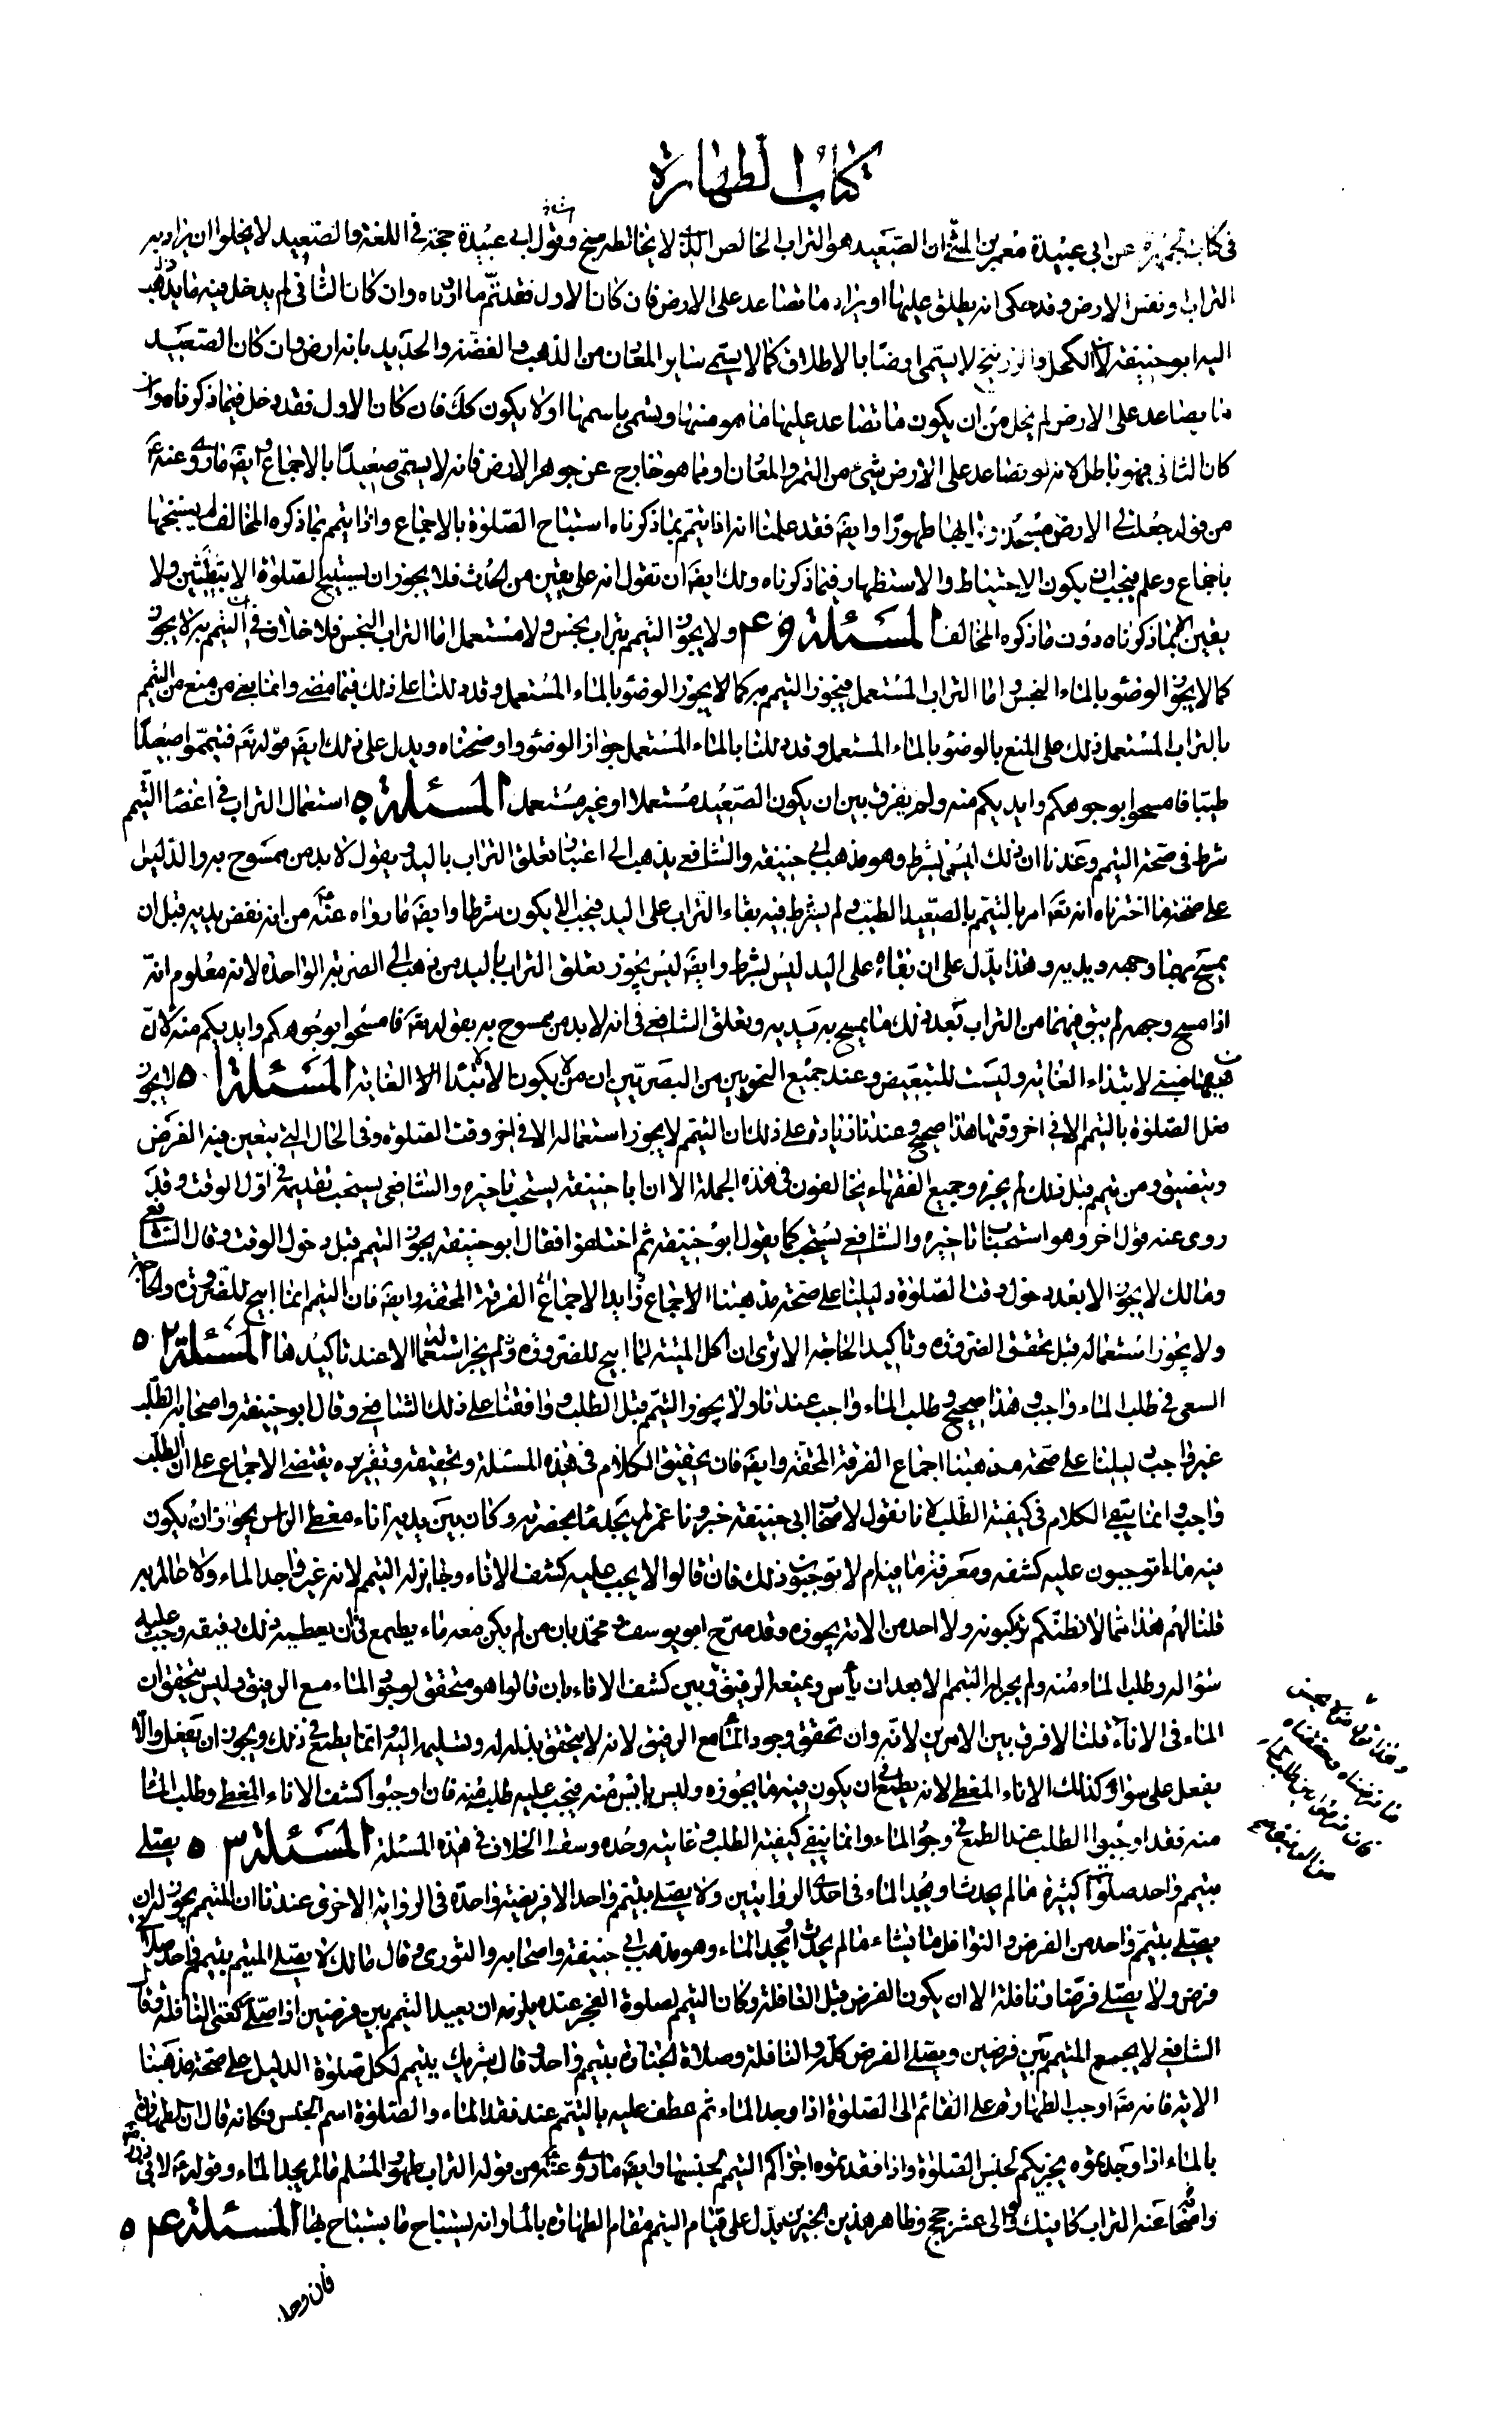 كتاب الطهارة
في كتاب الجمهرة عن ابي عبيدة معمر بن المثنى ان الصعيد هو التراب الخالص الذي لا يخالطه سبخ وقول ابي عبيدة حجة في اللغة والصعيد لا يخلوا ان يراد به
التراب ونفس الارض وقد حكى انه يطلق عليها او يراد ما تصاعد على الارض فان كان الاول فقد تم ما اردناه وان كان الثاني لم يدخل فيه ما يذهب
اليه ابو حنيفة لان الكحل والزرنيخ لا يسمى ارضا بالاطلاق كما لا يسمى ساير المعادن من الذهب والفضة والحديد بانه ارض وان كان الصعيد
ما يصاعد على الارض لم يخل من ان يكون ما تصاعد عليها ما هو منها ويسمى باسمها او لا يكون كك فان كان الاول فقد دخل فيما ذكرناه وان
كان الثاني فهو باطل لانه لو تصاعد على الارض شيء من الثمر والمعادن او مما هو خارج عن جوهر الارض فانه لا يسمى صعيدا بالاجماع وايضَ ما روى عنه ع
من قوله جعلت لي الارض مسجدا وترابها طهورا وايضَ فقد علمنا انه اذا تيمم بما ذكرناه استباح الصلوة بالاجماع واذا تيمم بما ذكره المخالف لم يستبحها
باجماع وعلم فيجب ان يكون الاحتياط والاستظهار فيما ذكرناه ولك ايضَ ان تقول انه على يقين من الحدث فلا يجوز ان يستبيح الصلوة الا بيقين ولا
يقين الا بما ذكرناه دون ما ذكره المخالف المسئلة ولا يجوز التيمم بتراب نجس ولا مستعمل اما التراب النجس فلا خلاف في ان التيمم به لا يجوز
كما لا يجوز الوضوء بالماء النجس واما التراب المستعمل فيجوز التيمم به كما لا يجوز الوضوء بالماء المستعمل وقد دللنا على ذلك فيما مضى وانما بنى من منع من التيمم
بالتراب المستعمل ذلك على المنع بالوضوء بالماء المستعمل وقد دللنا بالماء المستعمل جواز الوضوء واوضحناه ويدل على ذلك ايضَ قوله تعَ فتيمموا صعيدا
طيبا فامسحوا بوجوهكم وايديكم منه ولم يفرق بين ان يكون الصعيد مستعملا او غير مستعمل المسئلة ه استعمال التراب في اعضا التيمم
شرط في صحة التيمم وعندنا ان ذلك ليس بشرط وهو مذهب ابي حنيفة والشافعي يذهب الى اعتبار تعلق التراب باليد ويقول لا بد من ممسوح به والدليل
على صحة ما اخترناه انه تعَ امر بالتيمم بالصعيد الطيب ولم يشرط فيه بقاء التراب على اليد فيجب الا يكون شرطا وايضَ ما رواه عمار من انه نفض يديه قبل ان
يمسح بهما وجهه ويديه وهذا يدل على ان بقاه على اليد ليس بشرط وايضَ ليس يجوز تعلق التراب باليد من ذهب الى الضربة الواحدة لانه معلوم انه
اذا مسح وجهه لم يبق فيهما من التراب بعد ذلك ما يمسح به يديه وتعلق الشافعي في انه لا بد من ممسوح به بقوله تعَ فامسحوا بوجوهكم وايديكم منه لان
من ههنا لابتداء الغاية وليست للتبعيض وعند جميع النحويين من البصريين ان من لا يكون الا لابتداء الغاية المسئلة ١ ه لا يجوز
فعل الصلوة بالتيمم الا في اخر وقتها هذا صحيح وعندنا زيادة على ذلك ان التيمم لا يجوز استعماله الا في اخر وقت الصلوة وفي الحال التي يتعين فيه الفرض
ويتضيق ومن تيمم قبل ذلك لم يجزه وجميع الفقهاء يخالفون في هذه الجملة الا ان ابا حنيفة يستحب تاخيره والشافعي يستحب تقديمه في اول الوقت وقد
روى عنه قول اخر وهو استحباب تاخيره والشافعي يستحب كما يقول ابو حنيفة ثم اختلفوا فقال ابو حنيفة يجوز التيمم قبل دخول الوقت وقال الشافعي
ومالك لا يجوز الا بعد دخول وقت الصلوة دليلنا على صحة مذهبنا الاجماع اجماع الفرقة المحقة وايضَ فان التيمم انما ابيح للضرورة والحاجة
ولا يجوز استعماله قبل تحقق الضرورة وتاكيد الحاجة الا ترى ان اكل الميتة لما ابيح للضرورة لم يجز استعمالها الا عند تاكيدها المسئلة ٢ ه
السعي في طلب الماء واجب وهذا صحيح وطلب الماء واجب عندنا ولا يجوز التيمم قبل الطلب ووافقنا على ذلك الشافعي وقال ابو حنيفة واصحابه الطلب
غير واجب دليلنا على صحة مذهبنا اجماع الفرقة المحقة وايضَ فان تحقيق الكلام في هذه المسئلة وتحقيقه وتقريره يقتضي الاجماع على ان الطلب
واجب وانما يبقى الكلام في كيفية الطلب لانا نقول لاصحاب ابي حنيفة خبرونا عمن لم يجد ماء بحضرته وكان بين يديه اناء مغطى الراس يجوز ان يكون
فيه ماء اتوجبون عليه كشفه ومعرفة ما فيه ام لا توجبون ذلك فان قالوا لا يجب عليه كشف الاناء وجايز له التيمم لانه غير واجد الماء ولا عالم به
قلنا لهم هذا مما لا نظنكم تركبونه ولا احد من الامة يجوزه وقد صرح ابو يوسف ومحمد بان من لم يكن معه ماء يطمع في ان يعطيه ذلك رفيقه وجب عليه
سؤاله وطلب الماء منه ولم يجز له التيمم الا بعد ان يأس ويمنعه الرفيق وبين كشف الاناء بان قالوا هو متحقق لوجود الماء مع الرفيق وليس بتحقق ان
الماء في الاناء قلنا لا فرق بين الامرين لانه وان تحقق وجود الماء مع الرفيق لانه لا يتحقق بذله له وتسليمه اليه انما يطمع في ذلك ويجوز ان يفعل والا
يفعل على سواء وكذلك الاناء المغطى لانه يطمع ان يكون فيه ما يجوزه وليس بايس منه فيجب عليه طلبه منه فان اوجبوا كشف الاناء المغطى وطلب الماء
منه فقد اوجبوا الطلب عند الطمع في وجود الماء وانما يبقى كيفية الطلب وغايته وحده وسقط الخلاف في هذه المسئلة المسئلة ٣ ه يصلى
بتيمم واحد صلوات كثيرة ما لم يحدث او يجد الماء في احدى الروايتين ولا يصلى بتيمم واحد الا فريضة واحدة في الرواية الاخرى عندنا ان المتيمم يجوز له ان
يصلى بتيمم واحد من الفرض والنوافل ما يشاء ما لم يحدث او يجد الماء وهو مذهب ابي حنيفة واصحابه والثوري وقال مالك لا يصلى المتيمم بتيمم واحد صلاتي
فرض ولا يصلى فرضا ونافلة الا ان يكون الفرض قبل النافلة وكان التيمم لصلوة الفجر عنده يلزمه ان يعيد التيمم بين فرضين اذا صلى ركعتي النافلة وقال
الشافعي لا يجمع المتيمم بين فرضين ويصلى الفرض كله والنافلة وصلاة الجنازة بتيمم واحد وقال شريك يتيمم لكل صلوة الدليل على صحة مذهبنا
الاية فانه تعَ اوجب الطهارة على القائم الى الصلوة اذا وجد الماء ثم عطف عليه بالتيمم عند فقد الماء والصلوة اسم الجنس فكانه قال ان الطهارة
بالماء اذا وجدتموه يجزيكم لجنس الصلوة واذا فقدتموه اجزاكم التيمم لجنسها وايضَ ما روى عنه ع من قوله التراب طهور المسلم ما لم يجد الماء وقوله ع لابي ذر رضى
التراب كافيك ولو الى عشر حجج وظاهر هذين الخبرين يدل على قيام التيمم مقام الطهارة بالماء وانه يستباح ما يستباح بها المسئلة ه
فان وجد